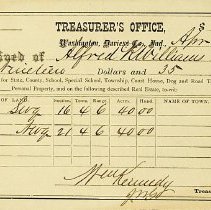 TREASURER'S OFFICE, $
Washington, Daviess Co., Ind., Apr
ived of Alfred Williams
Nineteen Dollars and 35
for State, County, School, Special School, Township, Court House, Dog and Road T
Personal Property, and on the following described Real Estate, to-wit:
OF LAND. Section Town. Range Acres NAME OF TOWN.
16 4 6 40 00
21 4 6 40 00
Kennedy